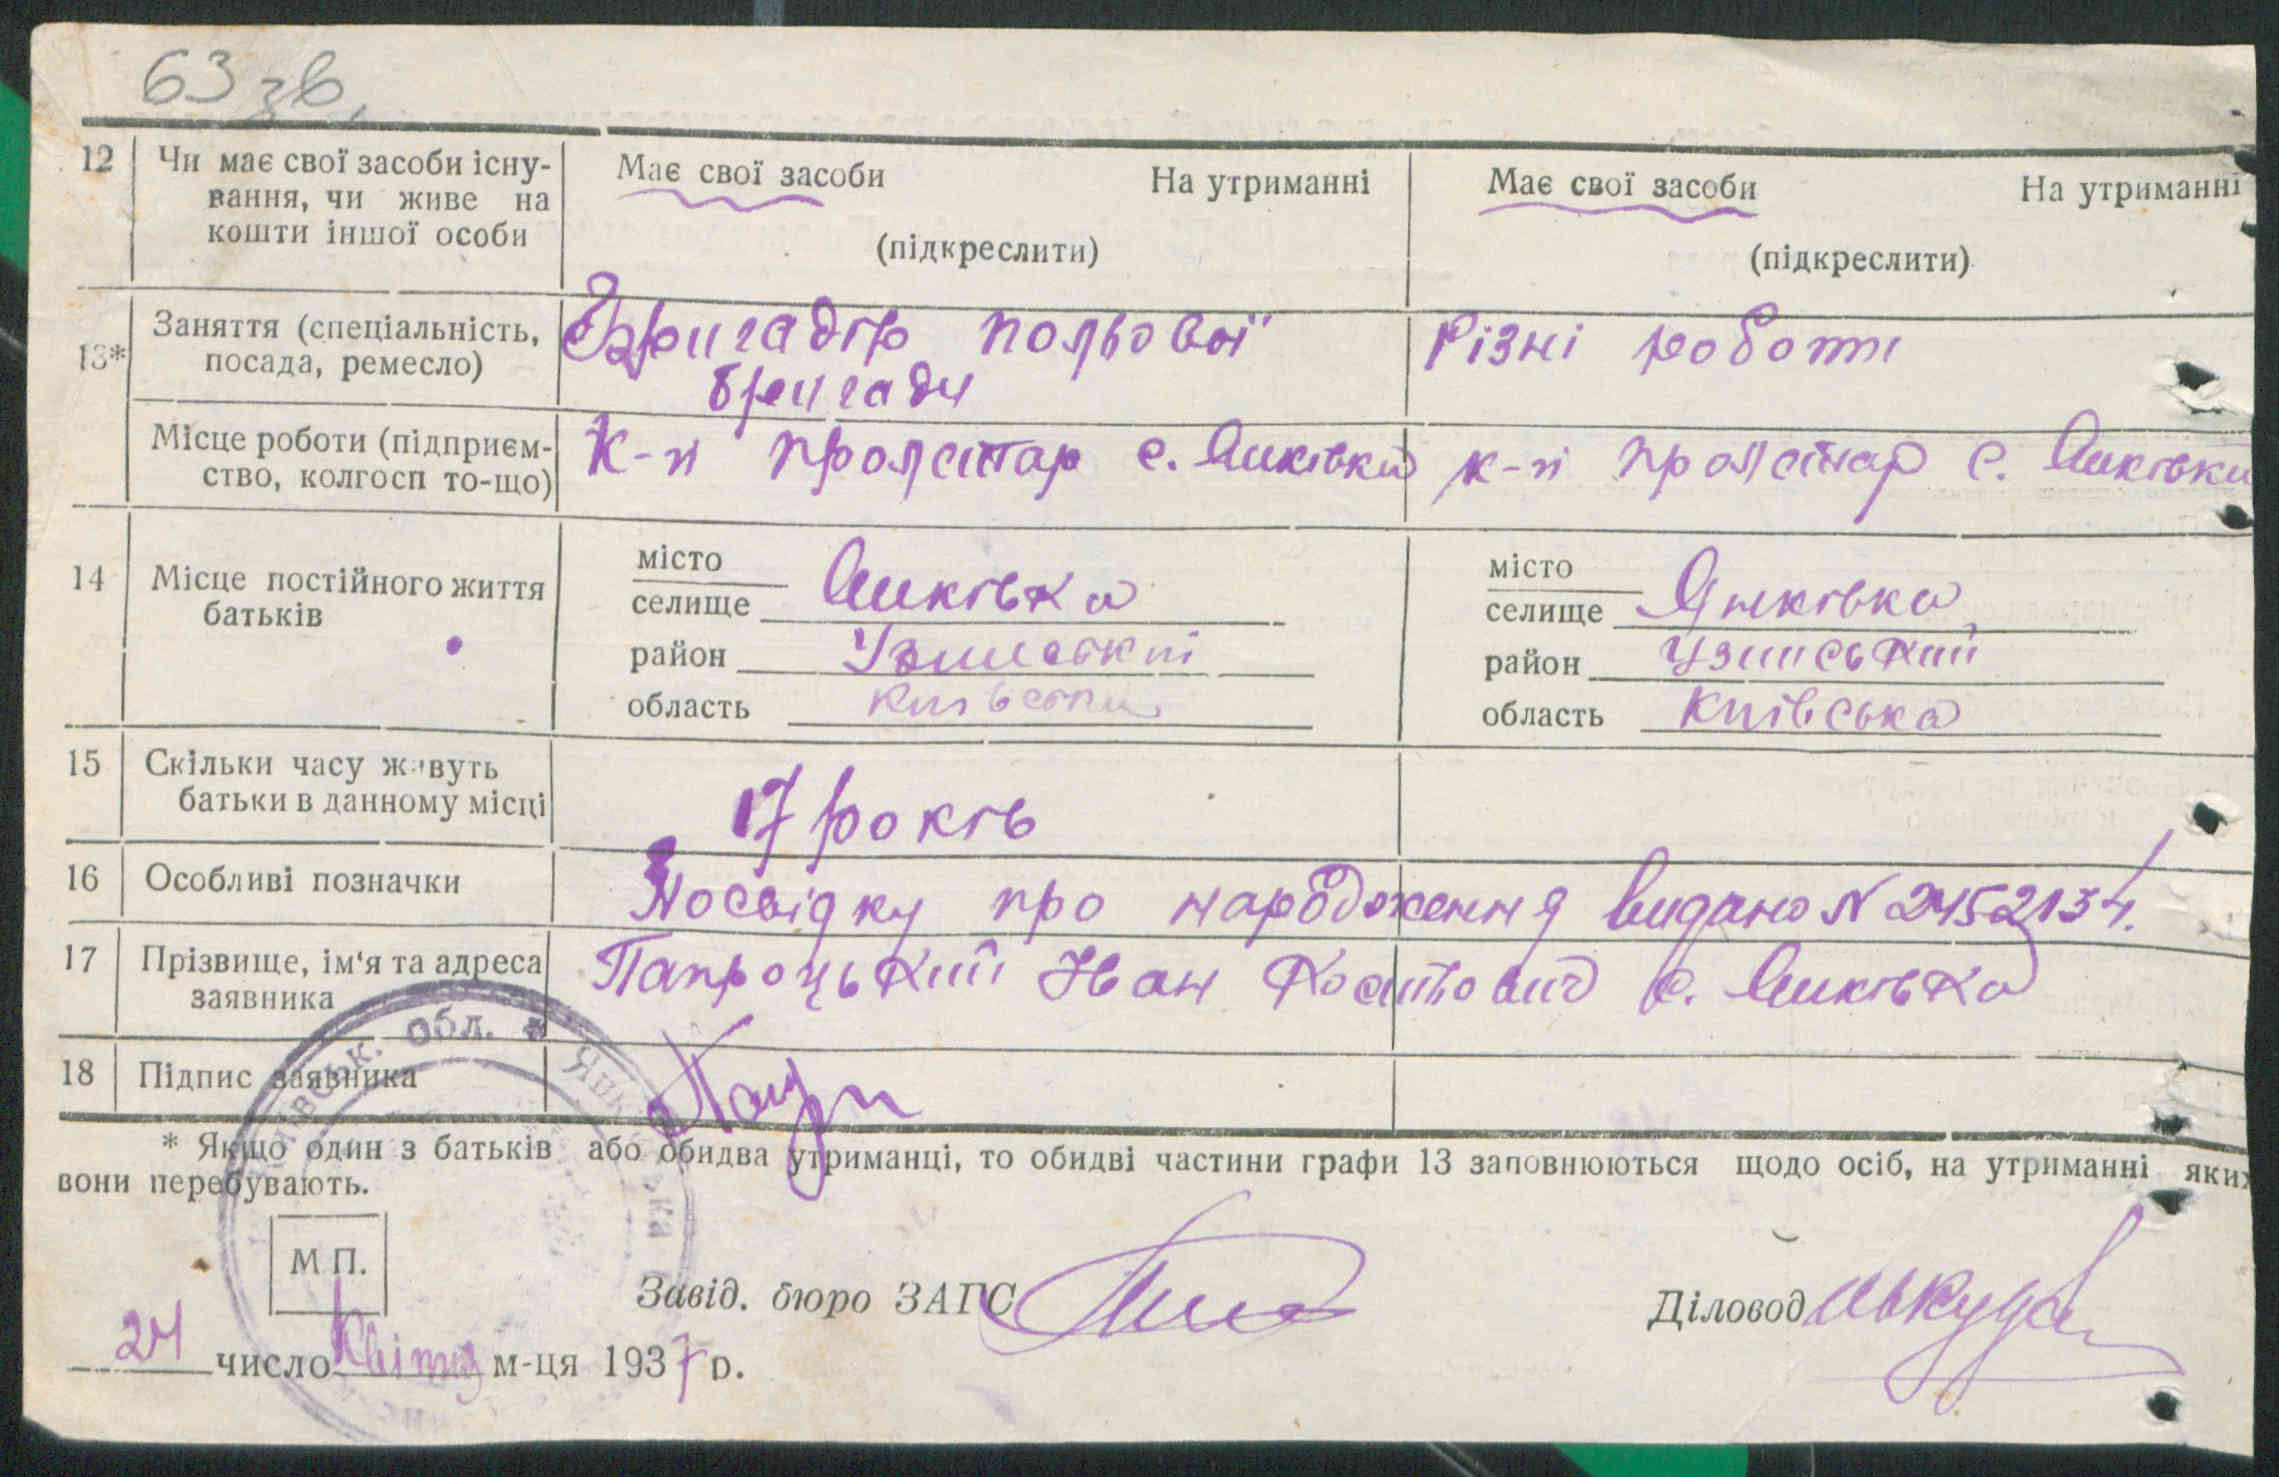 63 зв.
12 Чи має свої засоби існу- Має свої засоби На утриманні Має свої засоби На утриманні
вання, чи живе на
кошти іншої особи (підкреслити) (підкреслити)
13* Заняття (спеціальність, Бригадір польової Різні роботи
посада, ремесло) бригади
Місце роботи (підприєм- К-п пролетар с. Яцківки к-п пролетар с. Яцківки
ство, колгосп то-що)
14 Місце постійного життя місто місто
батьків селище Яцківка селище Яцківка
район Узинський район Узинський
область Київська область Київська
15 Скільки часу живуть
батьки в данному місці 17 років
16 Особливі позначки Посвідку про народження видано № 2452134.
17 Прізвище, ім'я та адреса Папроцький Іван с. Яцківка
заявника
18 Підпис заявника
* Якщо один з батьків або обидва утриманці, то обидві частини графи 13 заповнюються щодо осіб, на утриманні яких
вони перебувають.
М.П.
Завід. бюро ЗАГС Діловод
24 число Квітня м-ця 1937 р.
обл.